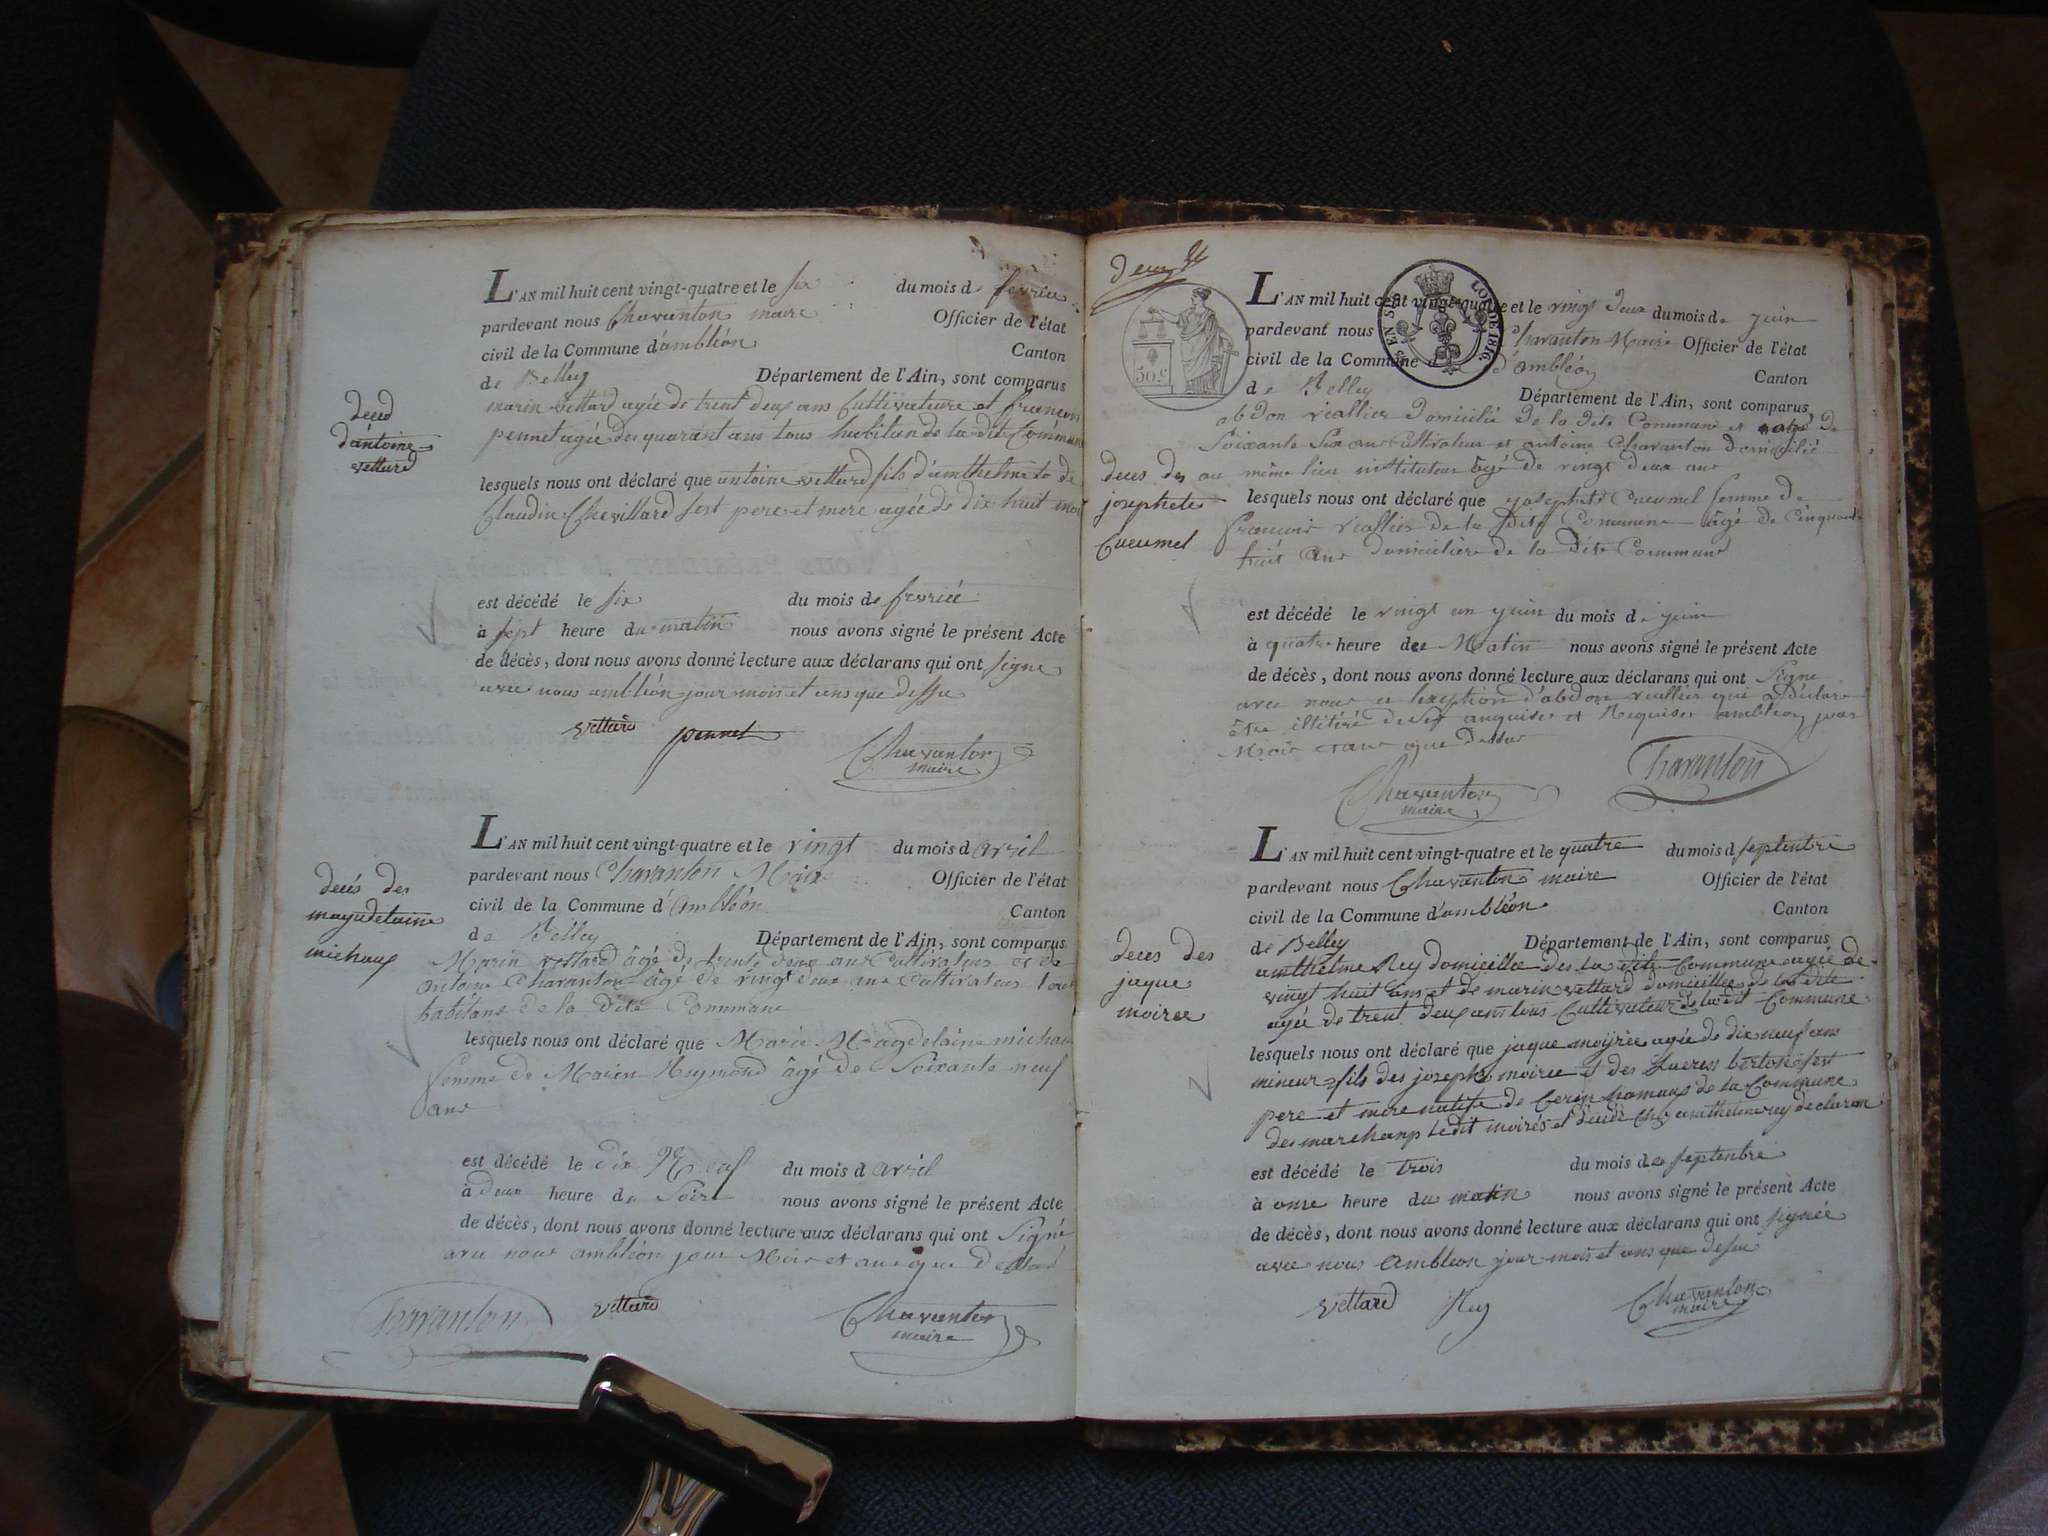 L'AN mil huit cent vingt-quatre et le six du mois de fevrier
pardevant nous Chavanton maire Officier de l'état
civil de la Commune d'ambléon Canton
de Belley Département de l'Ain, sont comparus
marin vettard agée de trent deux ans Cultivateure et francois
pennet agée de quarant ans tous habitan de la dite Commune
deced
d'antoine
vettard
lesquels nous ont déclaré que antoine vettard fils d'amthelme et de
Claudin Chevillard sest pere et mere agée de dix huit mois
est décédé le six du mois de fevrié
à sept heure du matin nous avons signé le présent Acte
de décès, dont nous avons donné lecture aux déclarans qui ont signe
avec nous ambléon jour mois et ans que dessu
vettard pennet Chavanton
maire
L'AN mil huit cent vingt-quatre et le vingt du mois d avril
pardevant nous Chavanton Maire Officier de l'état
civil de la Commune d'ambléon Canton
de Belley Département de l'Ain, sont comparus
Marin vettard âgé de trente deux ans Cultivateur et de
antoine Chavanton âgé de vingt deux ans Cultivateur tous
habitans de la Dite Commune
decés des
magdelaine
michaux
lesquels nous ont déclaré que Marie Magdelaine michau
femme de Marin Reymond âgé de Soixante neuf
ans
est décédé le dix Neuf du mois d avril
à deux heure de Soire nous avons signé le présent Acte
de décès, dont nous avons donné lecture aux déclarans qui ont Signé
avec nous ambléon jour Mois et ans que Dessus
Chavanton vettard Chavanton
maire
deux
50 c
EN SUS LOI DE 1816
L'AN mil huit cent vingt-quatre et le vingt Deux du mois de juin
pardevant nous Chavanton Maire Officier de l'état
civil de la Commune d'ambléon Canton
de Belley Département de l'Ain, sont comparus
abdon reallier Domicilié de la dite Commune et de
Soixante Six ans Cultivateur et antoine Chavanton Domicilié
au même lieu instituteur âgé de vingt deux ans
deces des
josephete
Cucumel
lesquels nous ont déclaré que josephete Cucumel femme de
francois reallier de la Dite Commune âgé de Cinquante
huit ans domiciliere de la Dite Commune
est décédé le vingt un juin du mois de juin
à quatre heure dee Matin nous avons signé le présent Acte
de décès, dont nous avons donné lecture aux déclarans qui ont Signe
avec nous a lexeption d'abdon reallier qui a Déclaré
être illitéré de Ce anquiser et Requiser ambléon jour
Mois et ans que Dessus
Chavanton Chavanton
maire
L'AN mil huit cent vingt-quatre et le quatre du mois d septenbre
pardevant nous Chavanton maire Officier de l'état
civil de la Commune d'ambléon Canton
de Belley Département de l'Ain, sont comparus
amthelme Rey domicellee des la dite Commune agée de
vingt huit ans et de marin vettard domicellee de la dite
agée de trent deux ans tous Cultivateur de la dit Commune
deces des
jaque
moiree
lesquels nous ont déclaré que jaque moijree agée de dix neuf ans
mineur fils des joseph moiree et des bertosi sest
pere et mere natife de Cerin hamaux de la Commune
des marchanp Ledit moirés et décidé Chez amthelme rey declaran
est décédé le trois du mois dee septenbre
à onse heure du matin nous avons signé le présent Acte
de décès, dont nous avons donné lecture aux déclarans qui ont signée
avec nous Ambleon jour mois et ans que dessu
vettard Rey Chavanton
maire